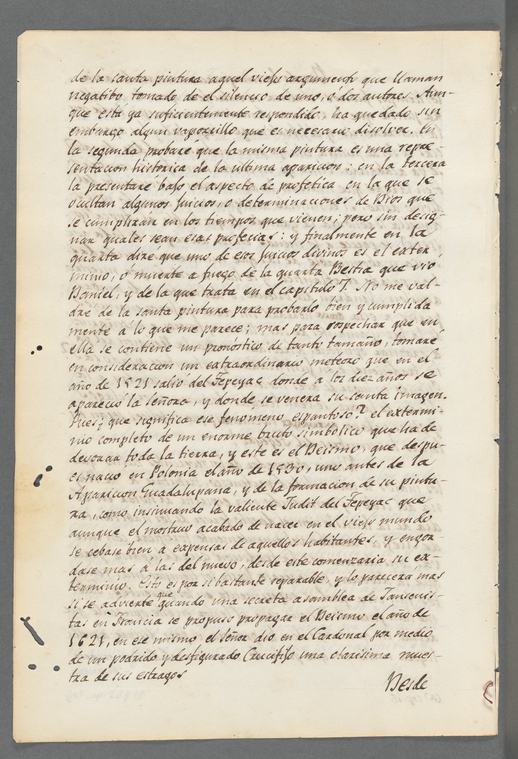 de la santa pintura aquel viejo argumento que llaman
negatibo tomado de el silencio de uno, ó dos autores. Aun-
que esta ya suficientemente respondido, ha quedado sin
embargo algun vaporcillo que es necesario disolver. En
la segunda probare que la misma pintura es una repre-
sentacion historica de la ultima aparicion: en la tercera
la presentare bajo el aspecto de profetica en la que se
ocultan algunos juicios, o determinaciones de Dios que
se cumpliran en los tiempos que vienen; pero sin desig-
nar quales sean esas profecias: y finalmente en la
quarta dire que uno de esos juicios divinos es el exter
minio, o muerte a fuego de la quarta Bestia que vio
Daniel, y de la que trata en el capitulo 7. No me val-
dre de la santa pintura para probarlo bien y cumplida
mente a lo que me parece; mas para sospechar que en
ella se contiene un pronostico de tanto tamaño, tomare
en consideracion un extraordinario meteoro que en el
año de 1521 salio del Tepeyac donde a los diez años se
aparecio la Señora, y donde se venera su santa imagen.
Pues; que significa ese fenomeno espantoso? el extermi-
nio completo de un enorme bruto simbolico que ha de
devorar toda la tierra, y este es el Deismo, que despu-
es nacio en Polonia el año de 1530, uno antes de la
Aparicion Guadalupana, y de la formacion de su pintu-
ra, como insinuando la valiente Judit del Tepeyac que
aunque el mostruo acabado de nacer en el viejo mundo
se cebase bien a expensas de aquellos habitantes, y engor-
dase mas a las del nuevo, desde este comenzaria su ex-
terminio. Esto es por si bastante reparable, y lo parecera mas
si se advierte que quando una secreta asamblea de Jansenis-
tas en Francia se propuso propagar el Deismo el año de
1621, en ese mismo el Señor dio en el Cardonal por medio
de un podrido y desfigurado Crucifijo una clarisima mues-
tra de sus estragos
Desde